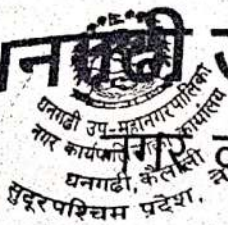 नगढी
धनगढी उप-महानगरपालिका
नगर कार्यपालिकाको कार्यालय
नगर
धनगढी, कैलाली
सुदूरपश्चिम प्रदेश, ने